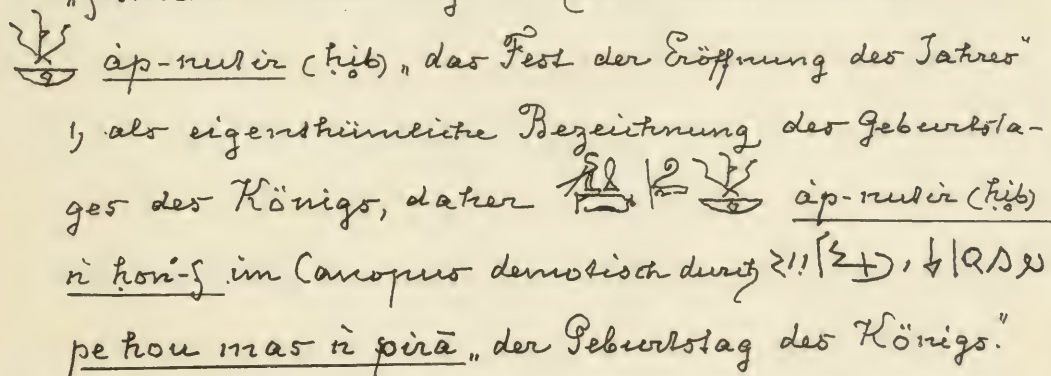 áp-nutir (ḥib) „das Fest der Eröffnung des Jahres"
1, als eigenthümliche Bezeichnung des Geburtsta-
ges des Königs, daher áp-nutir (ḥib)
ṅ ḥon-f im Canopus demotisch durch
pe hou mas ṅ pirā „der Geburtstag des Königs."